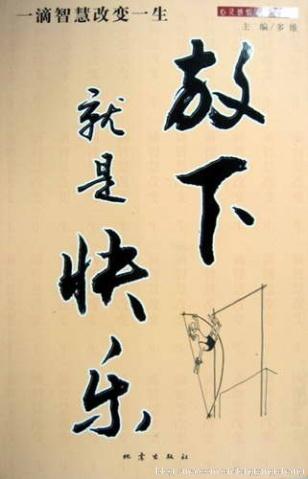 一滴智慧改变一生
主编/多维
放下
就是
快乐
地震出版社